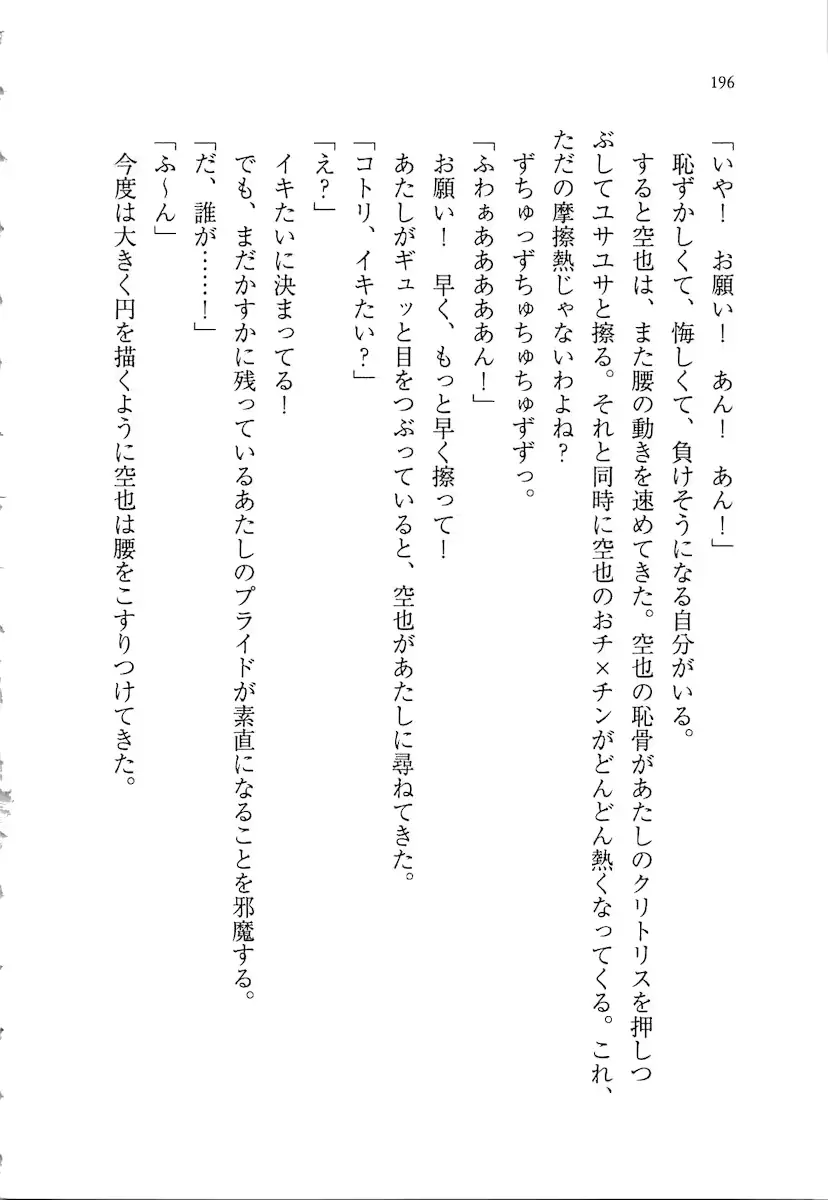 196
「いや！　お願い！　あん！　あん！」
恥ずかしくて、悔しくて、負けそうになる自分がいる。
すると空也は、また腰の動きを速めてきた。空也の恥骨があたしのクリトリスを押しつ
ぶしてユサユサと擦る。それと同時に空也のおチ×チンがどんどん熱くなってくる。これ、
ただの摩擦熱じゃないわよね？
ずちゅっずちゅちゅちゅずずっ。
「ふわぁあああああん！」
お願い！　早く、もっと早く擦って！
あたしがギュッと目をつぶっていると、空也があたしに尋ねてきた。
「コトリ、イキたい？」
「え？」
イキたいに決まってる！
でも、まだかすかに残っているあたしのプライドが素直になることを邪魔する。
「だ、誰が……！」
「ふ～ん」
今度は大きく円を描くように空也は腰をこすりつけてきた。